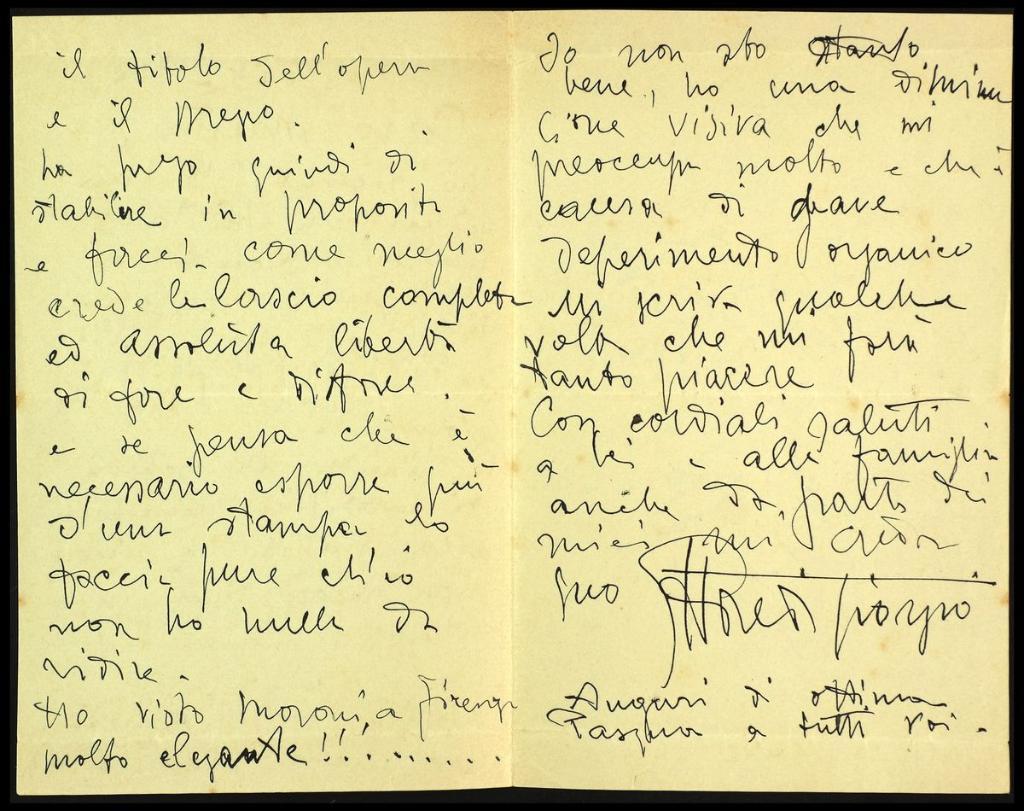 il titolo dell'opera
e il prezzo.
La prego quindi di
stabilire in proposito
e facci come meglio
crede le lascio completa
ed assoluta libertà
di fare e disfare.
e se pensa che è
necessario esporre più
d'una stampa lo
facci pure ch'io
non ho nulla da
ridire.
Ho visto Moroni, a Firenze
molto elegante!!.........
Io non sto tanto
bene, ho una diminu
zione visiva che mi
preoccupa molto e che è
causa di grave
deperimento organico
mi scriva qualche
volta che mi farà
tanto piacere
Con cordiali saluti
a lei e alla famiglia
anche da parte dei
miei mi creda
suo Ettore di Giorgio
Auguri di ottima
Pasqua a tutti voi.